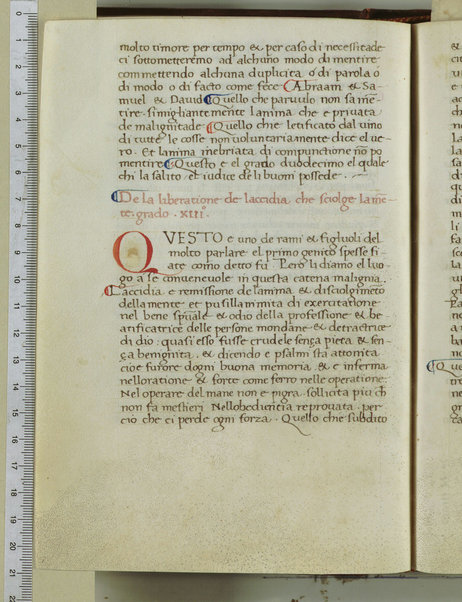 molto timore per tempo & per caso di necessitade
ci sottometteremo ad alchuno modo di mentire
commettendo alchuna duplicita o di parola o
di modo o di facto come fece Abraam & Sa-
muel & David Quello che parvulo non sa mē-
tire simigliantemente lanima che e privata
de malignitade Quello che letificato dal vino
di tutte le cosse non voluntariamente dice el ve-
ro. Et lanima inebriata di compunctione nō po
mentire Questo e el grado duodecimo el quale
chi la salito et iudice de li buoni possede.
De la liberatione de laccidia che sciolge la mē-
te. grado . XIII.
QVESTO e uno de rami & figluoli del
molto parlare el primo genito spesse fi-
ate como detto fu. Pero li diamo el luo
go a se convenevole in questa catena maligna.
Laccidia e remissione de lanima & disciolgimēto
della mente. et pusillanimita di exercitatione
nel bene spūale & odio della professione & be-
atificatrice delle persone mondane & detractrice
di dio. quasi esso fusse crudele senza pieta & sen-
za benignita. & dicendo e psalmi sta attonita
cioe furore dogni buona memoria. & e inferma
nelloratione & forte come ferro nelle operatione.
Nel operare del mane non e pigra. sollicita piu ch
non fa mestieri Nellobedientia reprovata. per-
cio che ci perde ogni forza. Quello che subdito